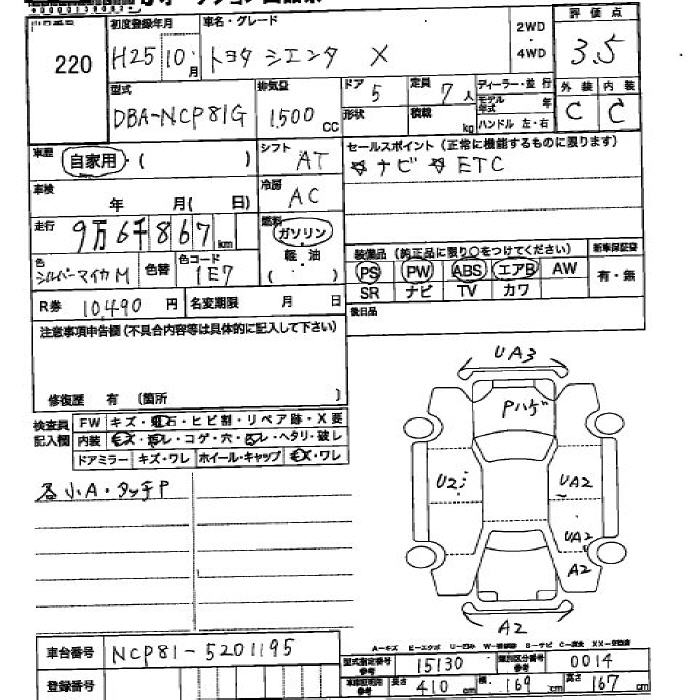 220
初度登録年月
H25 10月
車名・グレード
トヨタ シエンタ X
2WD
・
4WD
評価点
3.5
型式
DBA-NCP81G
排気量
1,500 CC
ドア
5
定員
7人
形状
積載
kg
ディーラー・並行
モデル年式 年
ハンドル 左・右
外装 内装
C C
車歴
自家用・( )
シフト
AT
セールスポイント(正常に機能するものに限ります)
☆ナビ☆ETC
車検
年 月( 日)
冷房
AC
走行
9万6千867km
燃料
ガソリン
・
軽油
( ・ )
色
シルバーマイカM
色替
色コード
1E7
装備品(純正品に限り○をつけてください)
新車保証書
PS PW ABS エアB AW
有・無
SR ナビ TV カワ
後日品
R券 10,490 円
名変期限 月 日
注意事項申告欄(不具合内容等は具体的に記入して下さい)
修復歴 有 〔箇所 〕
検査員
記入欄
FW キズ・飛石・ヒビ割・リペア跡・X要
内装 キズ・汚レ・コゲ・穴・スレ・ヘタリ・破レ
ドアミラー キズ・ワレ ホイール・キャップ キズ・ワレ
各小A・タッチP
UA3
Pハゲ
U2
UA2
UA2
A2
A2
A-キズ E-エクボ U-凹み W-補修跡 S-サビ C-腐食 XX-交換済
車台番号
NCP81-5201195
登録番号
型式指定番号
参考
15130
類別区分番号
参考
0014
車庫証明用
参考
長さ 410 cm
幅 169 cm
高さ 167 cm